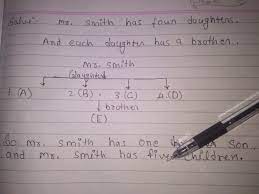 Solve:- mr. smith has four daughters.
And each daughter has a brother.
mr. smith
(daughter)
1.(A) 2.(B) 3.(C) 4.(D)
brother
(E)
So mr. smith has one son.
and mr. smith has five children.